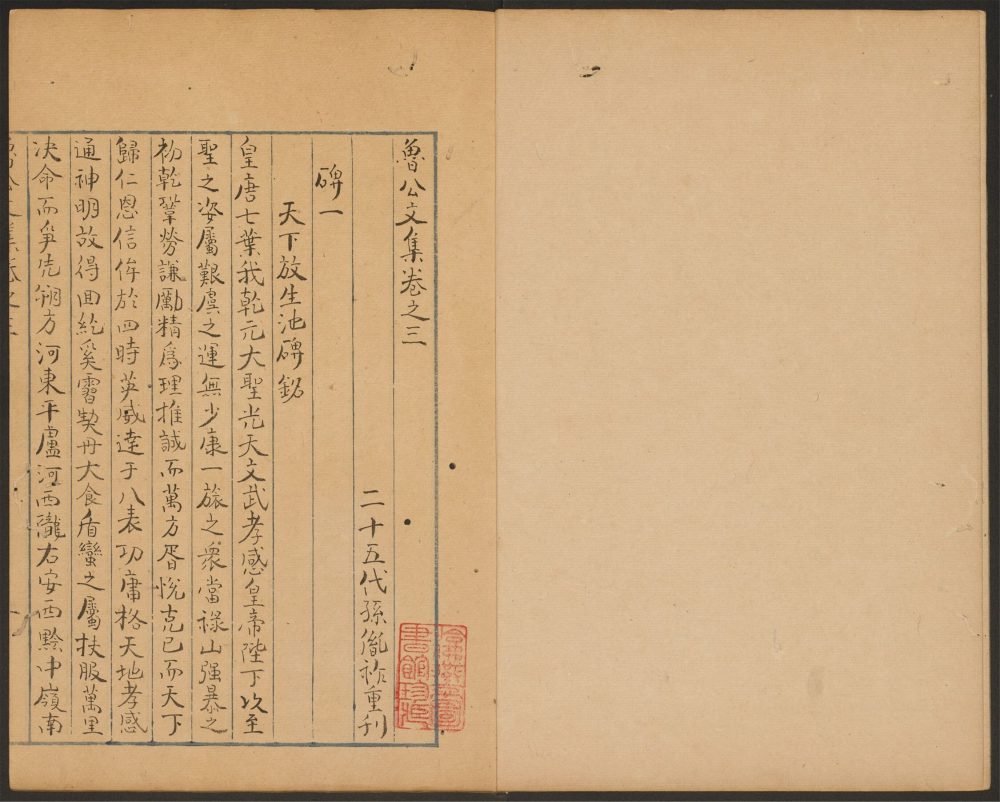 魯公文集卷之三
二十五代孫胤祚重刋
碑一
天下放生池碑銘
皇唐七葉我乾元大聖光天文武孝感皇帝陛下以至
聖之姿屬艱虞之運無少康一旅之衆當禄山强暴之
初乾鞏勞謙勵精爲理推誠而萬方胥悅克己而天下
歸仁恩信侔於四時英威達于八表功庸格天地孝感
通神明故得回紇奚霫契丹大食盾蠻之属扶服萬里
决命而爭先朔方河東平盧河西隴右安西黔中嶺南
魯公文集卷之三